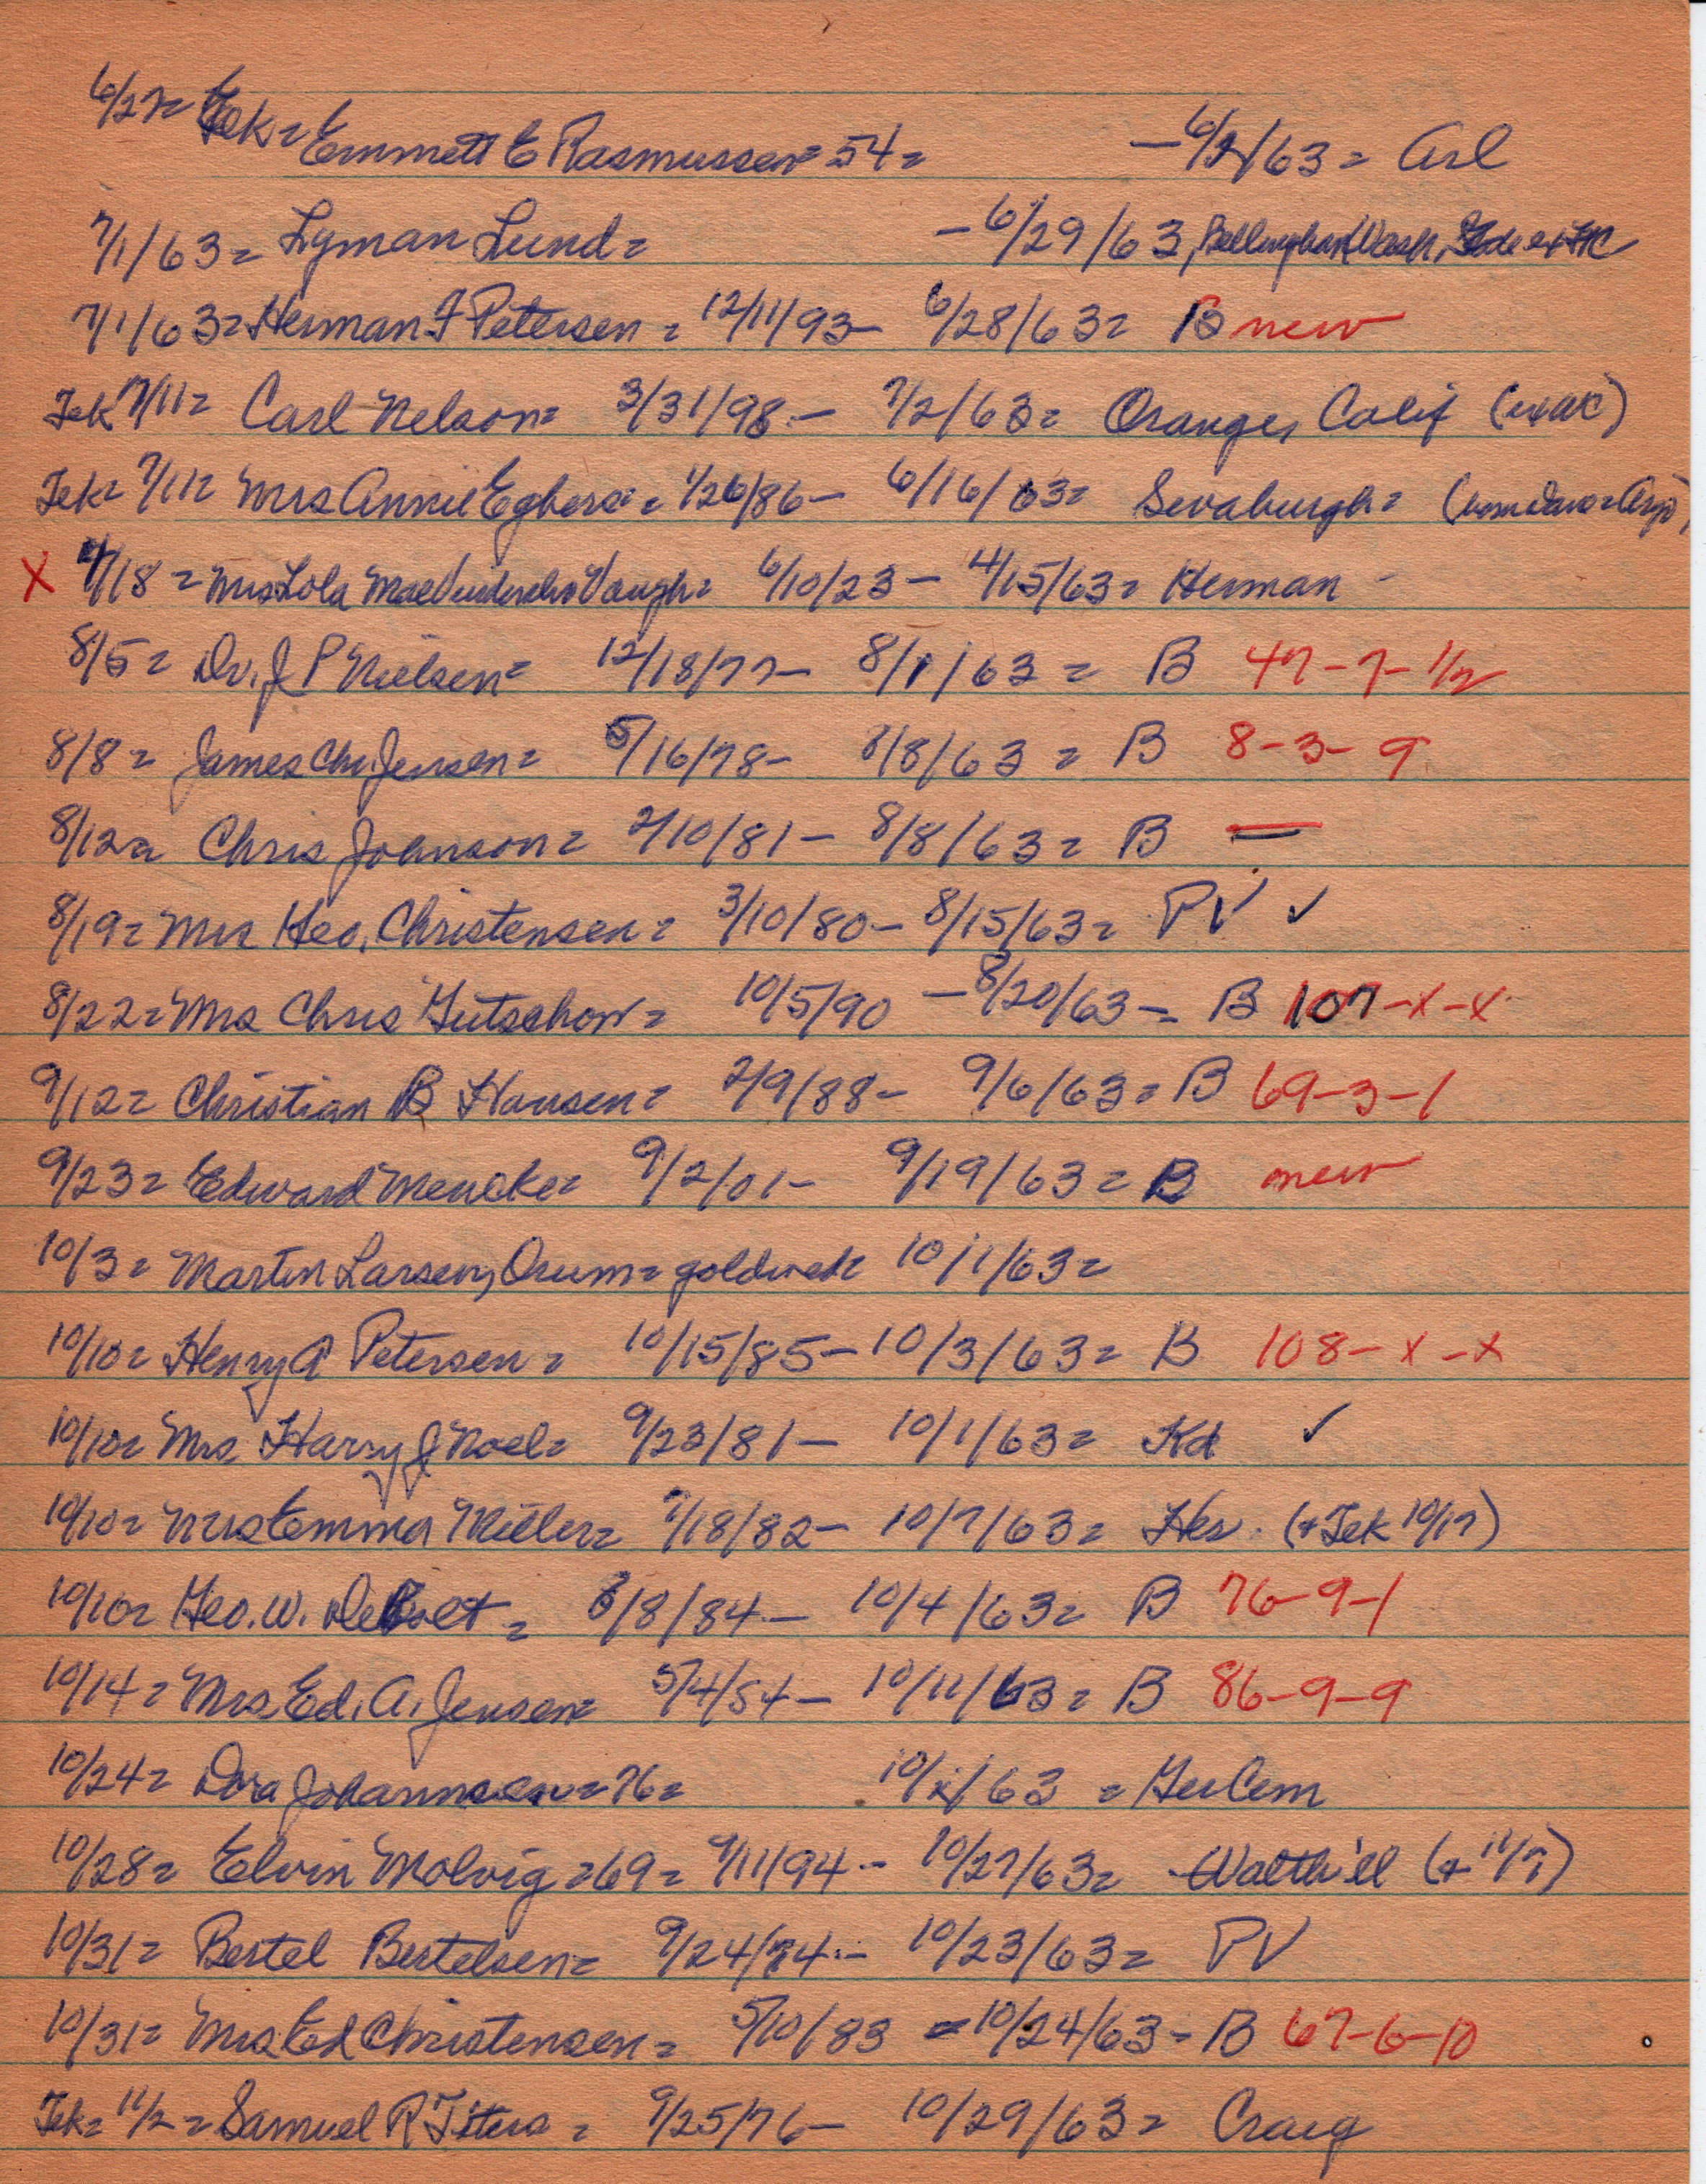 6/27= Tek= Emmett E Rasmussen= 54= - 6/ /63= Arl
7/1/63= Lyman Lund= - 6/29/63, Bellingham Wash,
7/1/63= Herman F Petersen= 12/11/93- 6/28/63= B new
Tek 7/11= Carl Nelson= 3/31/98- 7/2/63= Orange, Calif
Tek= 7/11= Mrs Annie Eghers= 1/26/86- 6/16/63=
X /18= Mrs Lola Mae Vaugh= 6/10/23- 4/15/63= Herman -
8/5= Dr. J P Nielsen= 12/18/77- 8/1/63= B 47-7-1/2
8/8= James Chr. Jensen= 5/16/78- 8/8/63= B 8-3-9
8/12= Chris Johnson= 2/10/81- 8/8/63= B —
8/19= Mrs Geo. Christensen= 3/10/80- 8/15/63= PV ✓
8/22= Mrs Chris Gutschow= 10/5/90 - 8/20/63-= B 107-x-x
9/12= Christian B Hansen= 2/9/88- 9/6/63= B 69-3-1
9/23= Edward Mencke= 9/2/01- 9/19/63= B new
10/3= Martin Larsen, Orum= 10/1/63=
10/10= Henry A Petersen= 10/15/85- 10/3/63= B 108-x-x
10/10= Mrs Harry J Noel= 9/23/81- 10/1/63= Kd ✓
10/10= Mrs Emma Miller= 7/18/82- 10/7/63= (+Tek 10/17)
10/10= Geo. W. DeBolt= 8/8/84- 10/4/63= B 76-9-1
10/14= Mrs Ed. A. Jensen= 5/4/84- 10/11/63= B 86-9-9
10/24= Dora Johannsen=76= 10/x/63 = Ger Cem
10/28= Elvin Molvig=69= 9/11/94- 10/27/63= Walthill (+ 11/7)
10/31= Bertel Bertelsen= 9/24/74- 10/23/63= PV
10/31= Mrs Ed Christensen= 5/10/83 = 10/24/63- B 67-6-10
Tek= 11/2= Samuel R Titera= 9/25/76- 10/29/63= Craig